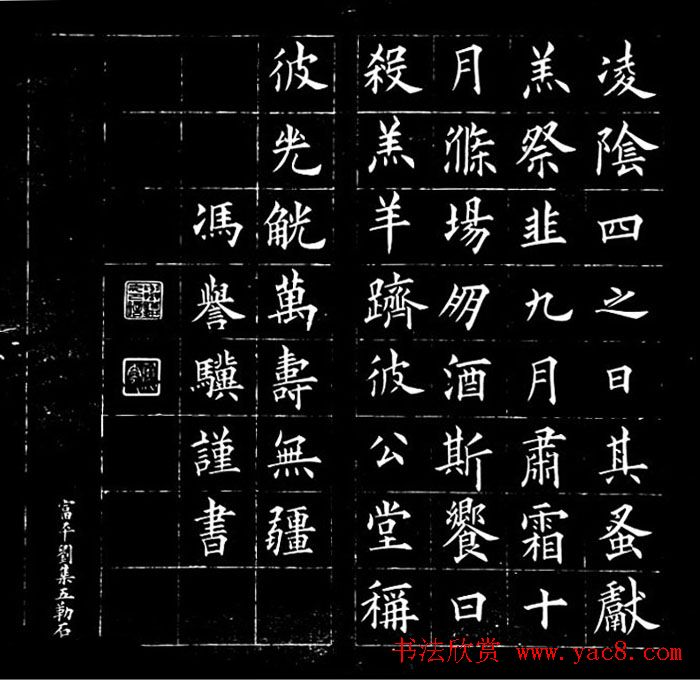 凌陰四之日其蚤獻
羔祭韭九月肅霜十
月滌場朋酒斯饗曰
殺羔羊躋彼公堂稱
彼兕觥萬壽無疆
馮譽驥謹書
富平劉集五勒石
书法欣赏 www.yac8.com